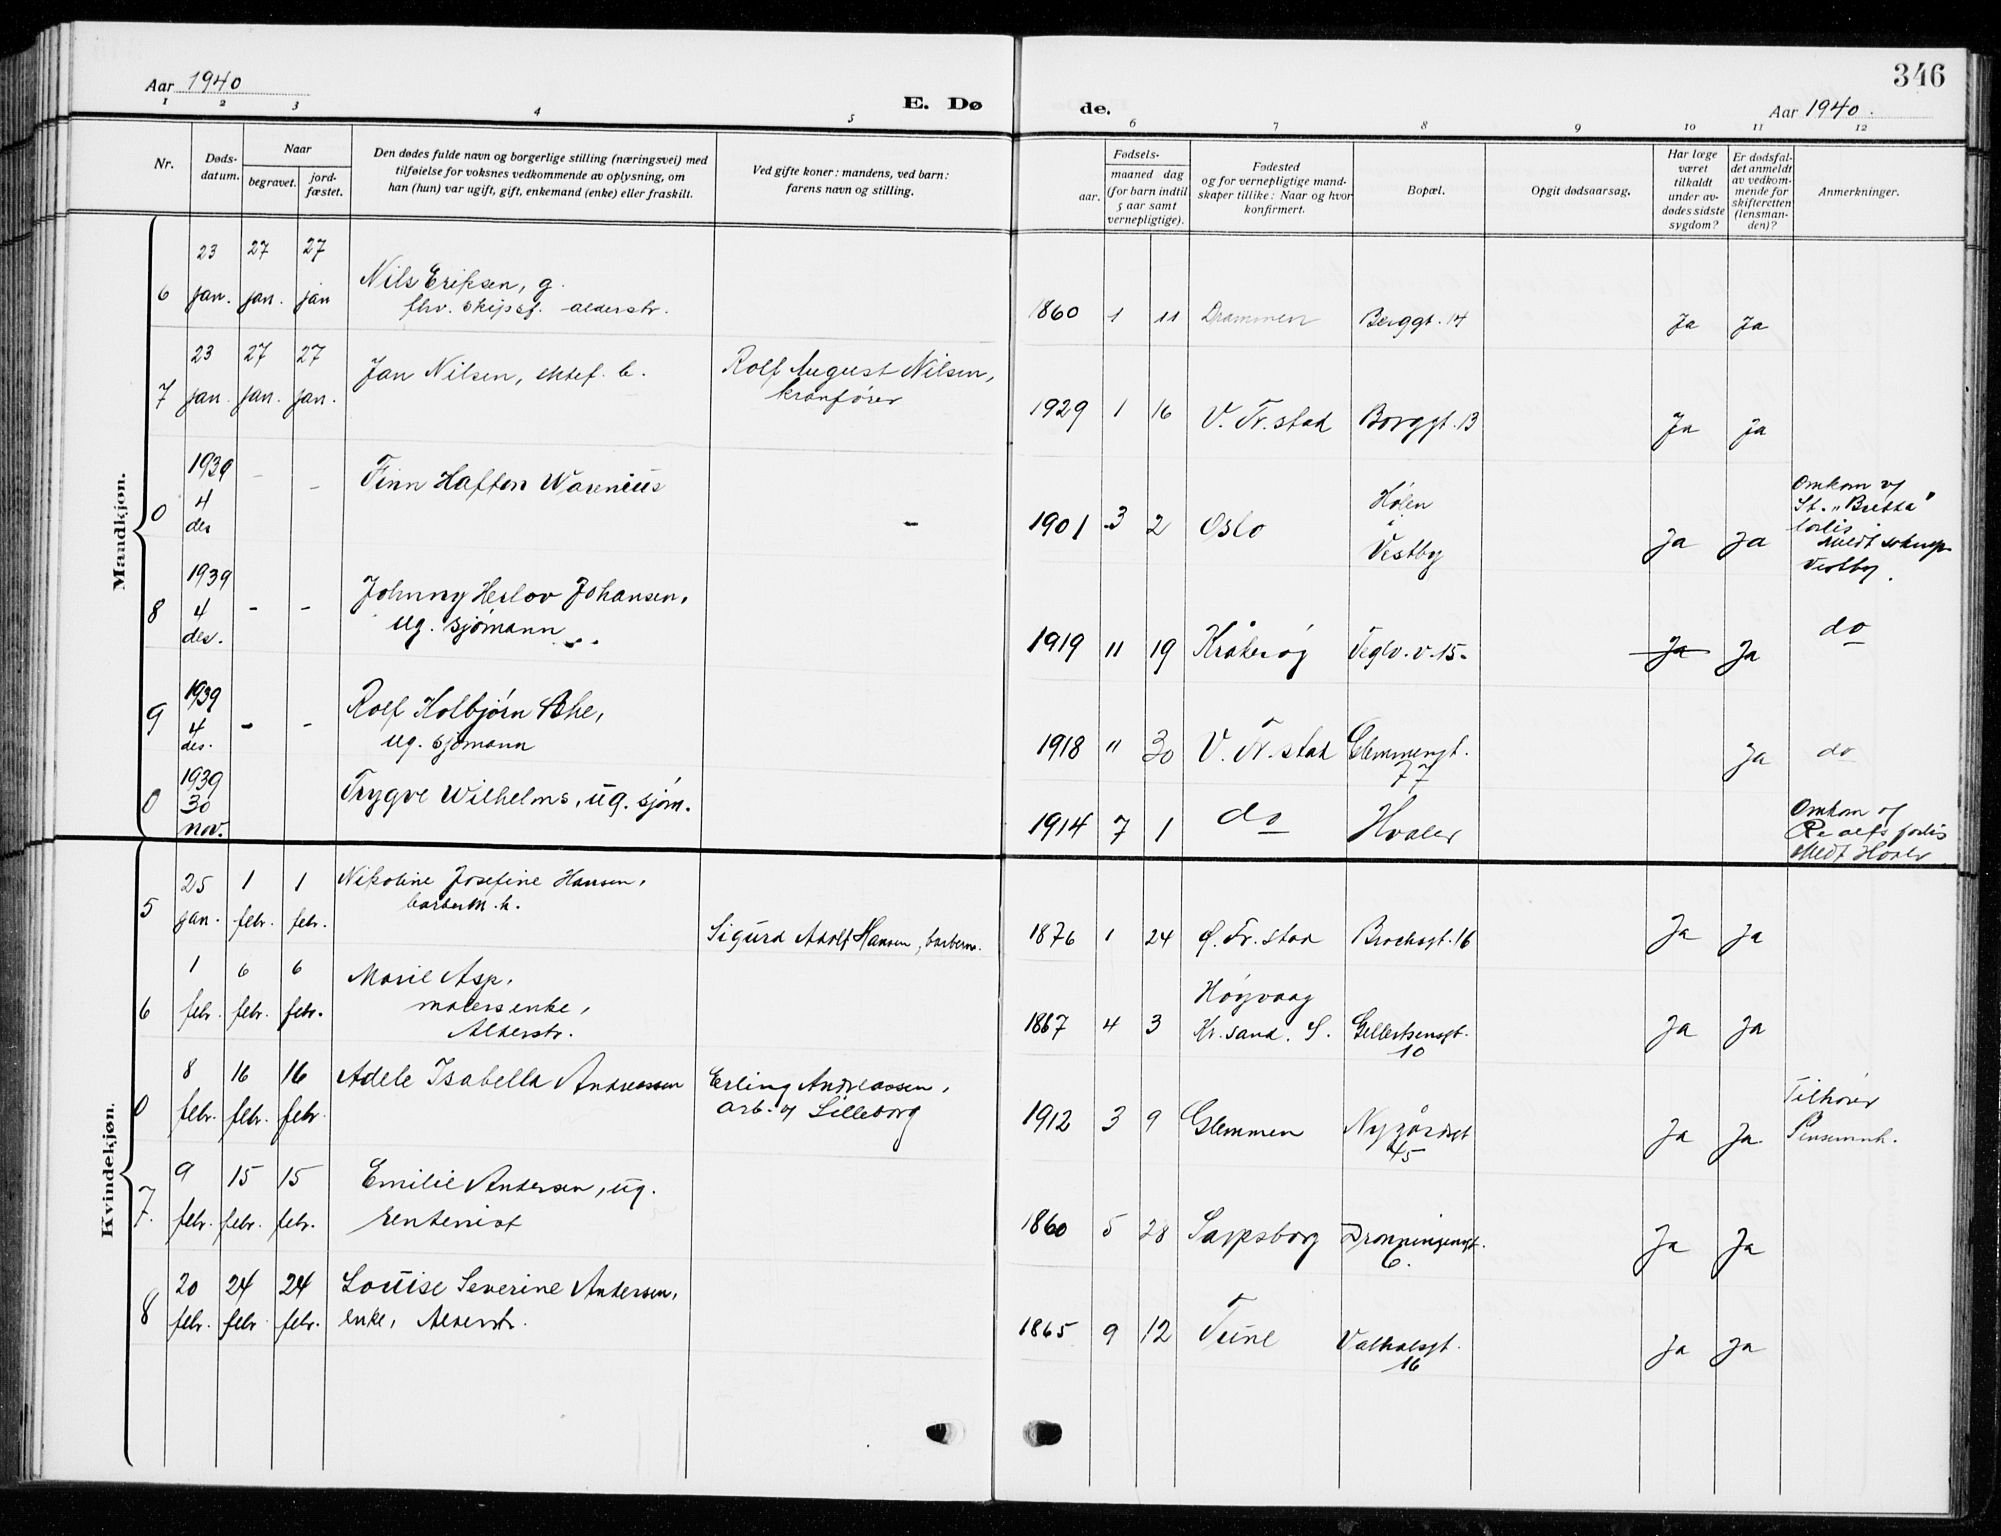 Aar 1940
E. Dø
de.
346
Aar 1940.
1 2 3 4 5 6 7 8 9 10 11 12
Nr.
Døds-
datum.
Naar
begravet.
jord-
fæstet.
Den dødes fulde navn og borgerlige stilling (næringsvei) med
tilføielse for voksnes vedkommende av oplysning, om
han (hun) var ugift, gift, enkemand (enke) eller fraskilt.
Ved gifte koner: mandens, ved barn:
farens navn og stilling.
Fødsels-
aar.
maaned dag
(for barn indtil
5 aar samt
vernepligtige).
Fødested
og for vernepligtige mand-
skaper tillike: Naar og hvor
konfirmert.
Bopæl.
Opgit dødsaarsag.
Har læge
været
tilkaldt
under av-
dødes sidste
sygdom?
Er dødsfal-
det anmeldt
av vedkom-
mende for
skifteretten
(lensman-
den)?
Anmerkninger.
Mandkjøn.
23 27 27
6 jan. jan. jan
Nils Eriksen, g.
fhv. skipsf. alderstr.
1860 1 11 Drammen Berggt. 14 Ja Ja
23 27 27
7 jan. jan. jan.
Jan Nilsen, ektef. b.
Rolf August Nilsen,
kranfører
1929 1 16 V. Fr.stad Borggt. 13 Ja Ja
1939 - -
0 4
des
Finn Hafton Warenius
-
1901 3 2 Oslo
Hølen
i
Vestby
Ja Ja
Omkom v/
St. "Bretta"
forlis.
Vestby.
1939
8 4 - -
des.
Johnny Herlov Johansen,
ug. sjømann
1919 11 19 Kråkerøy Teglv. v. 15. Ja Ja do
1939
9 4 - -
des.
Rolf Kolbjørn
ug. sjømann
1918 11 30 V. Fr.stad Glemmengt.
77
Ja do
1939
0 30
nov.
Trygve Wilhelms, ug. sjøm.
1914 7 1 do Hvaler
Omkom v/
forlis
Meldt Hvaler
Kvindekjøn.
25 1 1
5 jan. febr. febr.
Nikoline Josefine Hansen,
barberm. h.
Sigurd Adolf Hansen, barberm.
1876 1 24 Ø. Fr.stad Brochsgt. 16 Ja Ja
1 6 6
6 febr. febr. febr.
Marie Asp,
malersenke,
Alderstr.
1867 4 3
Høgvaag
Kr.sand. S.
Gellertsensgt.
10
Ja Ja
8 16 16
0 febr. febr. febr.
Adele Isabella Andreassen
Erling Andreassen,
arb. v/ Lilleborg
1912 3 9 Glemmen Nygårdsgt
45
Ja Ja.
Tilhører
Pinsemnh.
9 15 15
7. febr. febr. febr.
Emilie Andersen, ug.
rentenist
1860 5 28 Sarpsborg Dronningensgt.
6.
Ja Ja
20 24 24
8 febr. febr. febr.
Louise Severine Andersen,
enke, Alderstr.
1865 9 12 Tune Valhalsgt.
16
Ja Ja